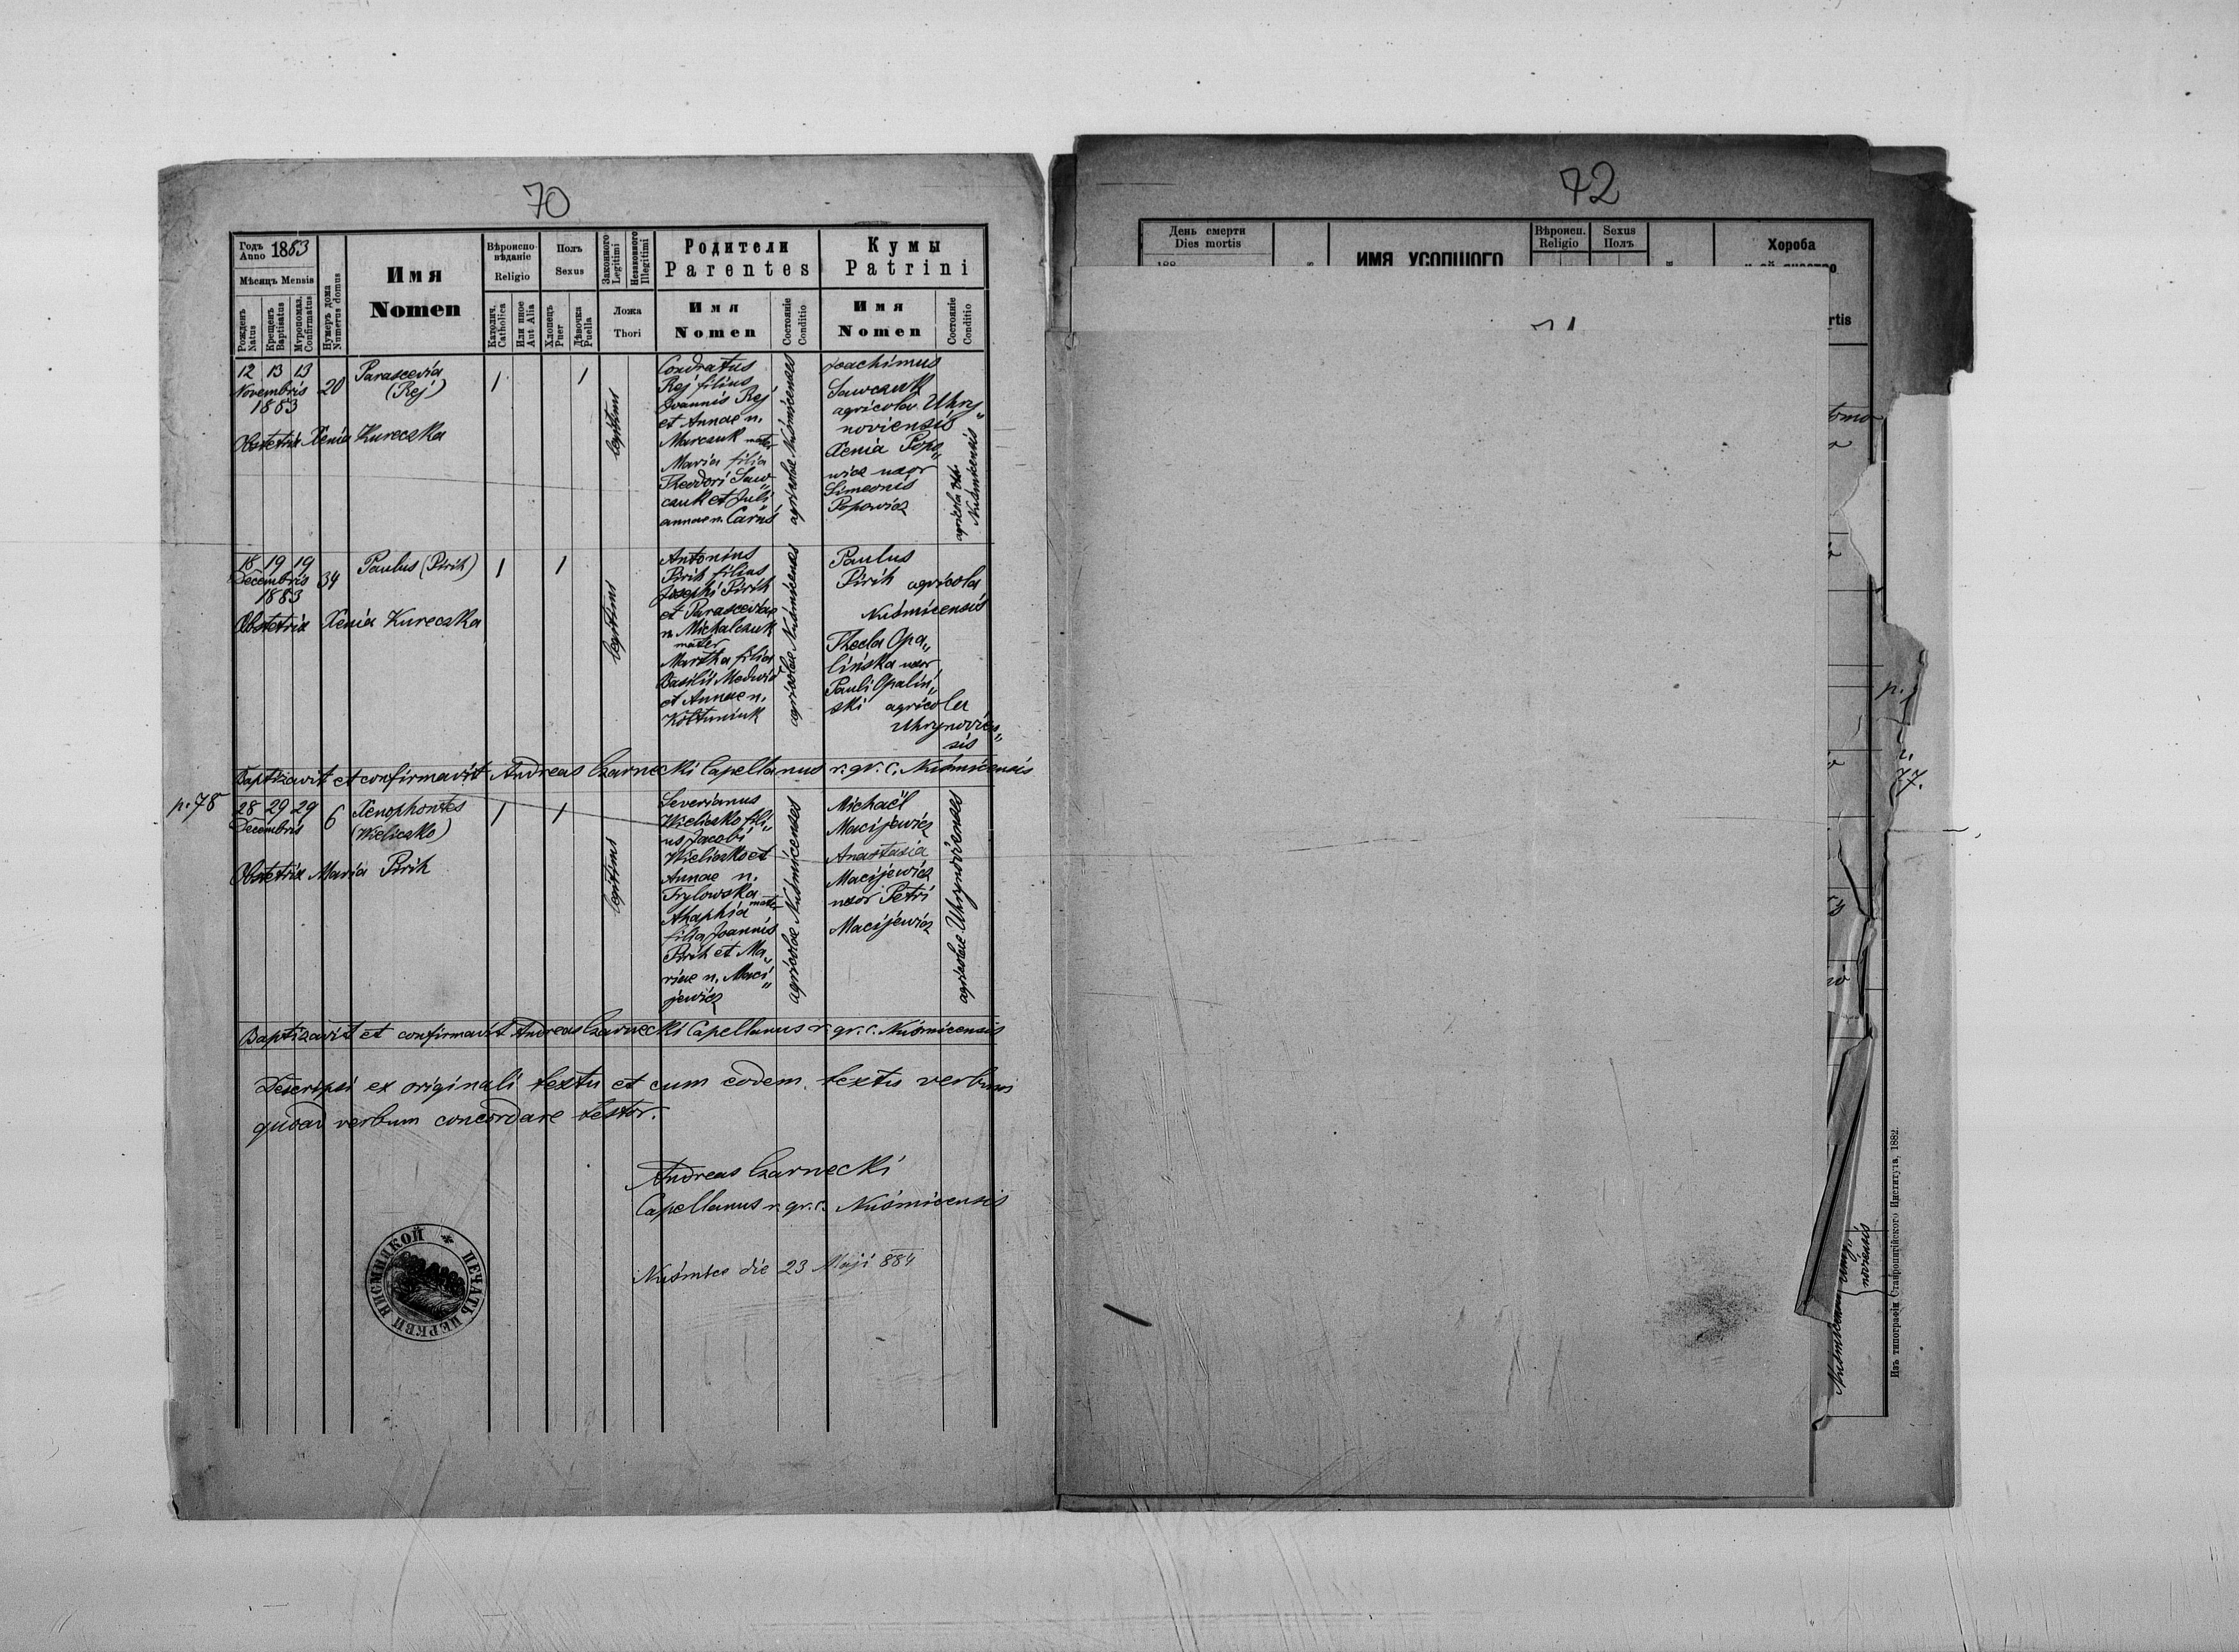 70
Годъ
Anno 1883
Мѣсяцъ Mensis
Рожденъ
Natus
Крещенъ
Baptisatus
Муропомаз.
Confirmatus
Нумеръ дома
Numerus domus
Имя
Nomen
Вѣроиспо-
вѣданіе
Religio
Католич.
Catholica
Или иное
Aut Alia
Полъ
Sexus
Хлопецъ
Puer
Дѣвочка
Puella
Законного
Legitimi
Незаконного
Illegitimi
Ложа
Thori
Родители
Parentes
Имя
Nomen
Состояніе
Conditio
Кумы
Patrini
Имя
Nomen
Состояніе
Conditio
12 13 13
Novembris
1883
20
Parascevia
(Rej)
1
1
legitimi
Obstetrix Xenia Kureczka
Condratus
Rej filius
Joannis Rej
et Annae n.
Marczuk mater
Maria filia
Theodori Saw„
czuk et Juli„
annae n. Caruś
agricolae Nuśmicenses
Joachimus
Sawczuk
agricola Uhry„
noviensis
Xenia Popo„
wicz uxor
Simeonis
Popowicz
agricola
Nuśmicensis
18 19 19
Decembris
1883
34
Paulus (Pirih)
1
1
legitimi
Obstetrix Xenia Kureczka
Antonius
Pirih filius
Josephi Pirih
et Parasceviae
n. Michalczuk
mater
Martha filia
Basilii Medwid
et Annae n.
Kołtuniuk
agricolae Nuśmicenses
Paulus
Pirih agricola
Nuśmicensis
Thecla Opa„
lińska uxor
Pauli Opaliń„
ski agricola
Uhrynovien„
sis
Baptizavit et confirmavit Andreas Czarnecki Capellanus r. gr. c. Nuśmicensis
p. 78
28 29 29
Decembris
6
Xenophontes
(Wieliczko)
1
1
legitimi
Obstetrix Maria Pirih
Severianus
Wieliczko fili„
us Jacobi
Wieliczko et
Annae n.
Frylowska
mater
Ahaphia
filia Joannis
Pirih et Ma„
riae n. Maci„
jewicz
agricolae Nuśmicenses
Michaël
Macijewicz
Anastasia
Macijewicz
uxor Petri
Macijewicz
agricolae Uhrynovienses
Baptizavit et confirmavit Andreas Czarnecki Capellanus r. gr. c. Nuśmicensis
Descripsi ex originali textu et cum eodem textu verbum
quoad verbum concordare testor.
Andreas Czarnecki
Capellanus r. gr. c. Nuśmicensis
Nuśmice die 23 Maji 884
ПЕЧАТЬ ЦЕРКВИ НИСМИЦКОЙ
72
День смерти
Dies mortis
188
ИМЯ УСОПШОГО
Вѣроисп.
Religio
Sexus
Полъ
Хороба
rtis
p.
77.
noviensis
Изъ типографіи Ставропигійского Института, 1882.